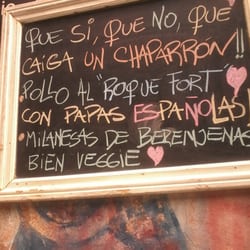 QUE SI, QUE NO, QUE
CAIGA UN CHAPARRON!!
POLLO AL "ROQUE FORT"
CON PAPAS ESPAÑOLAS!
MILANESAS DE BERENJENAS
BIEN VEGGIE